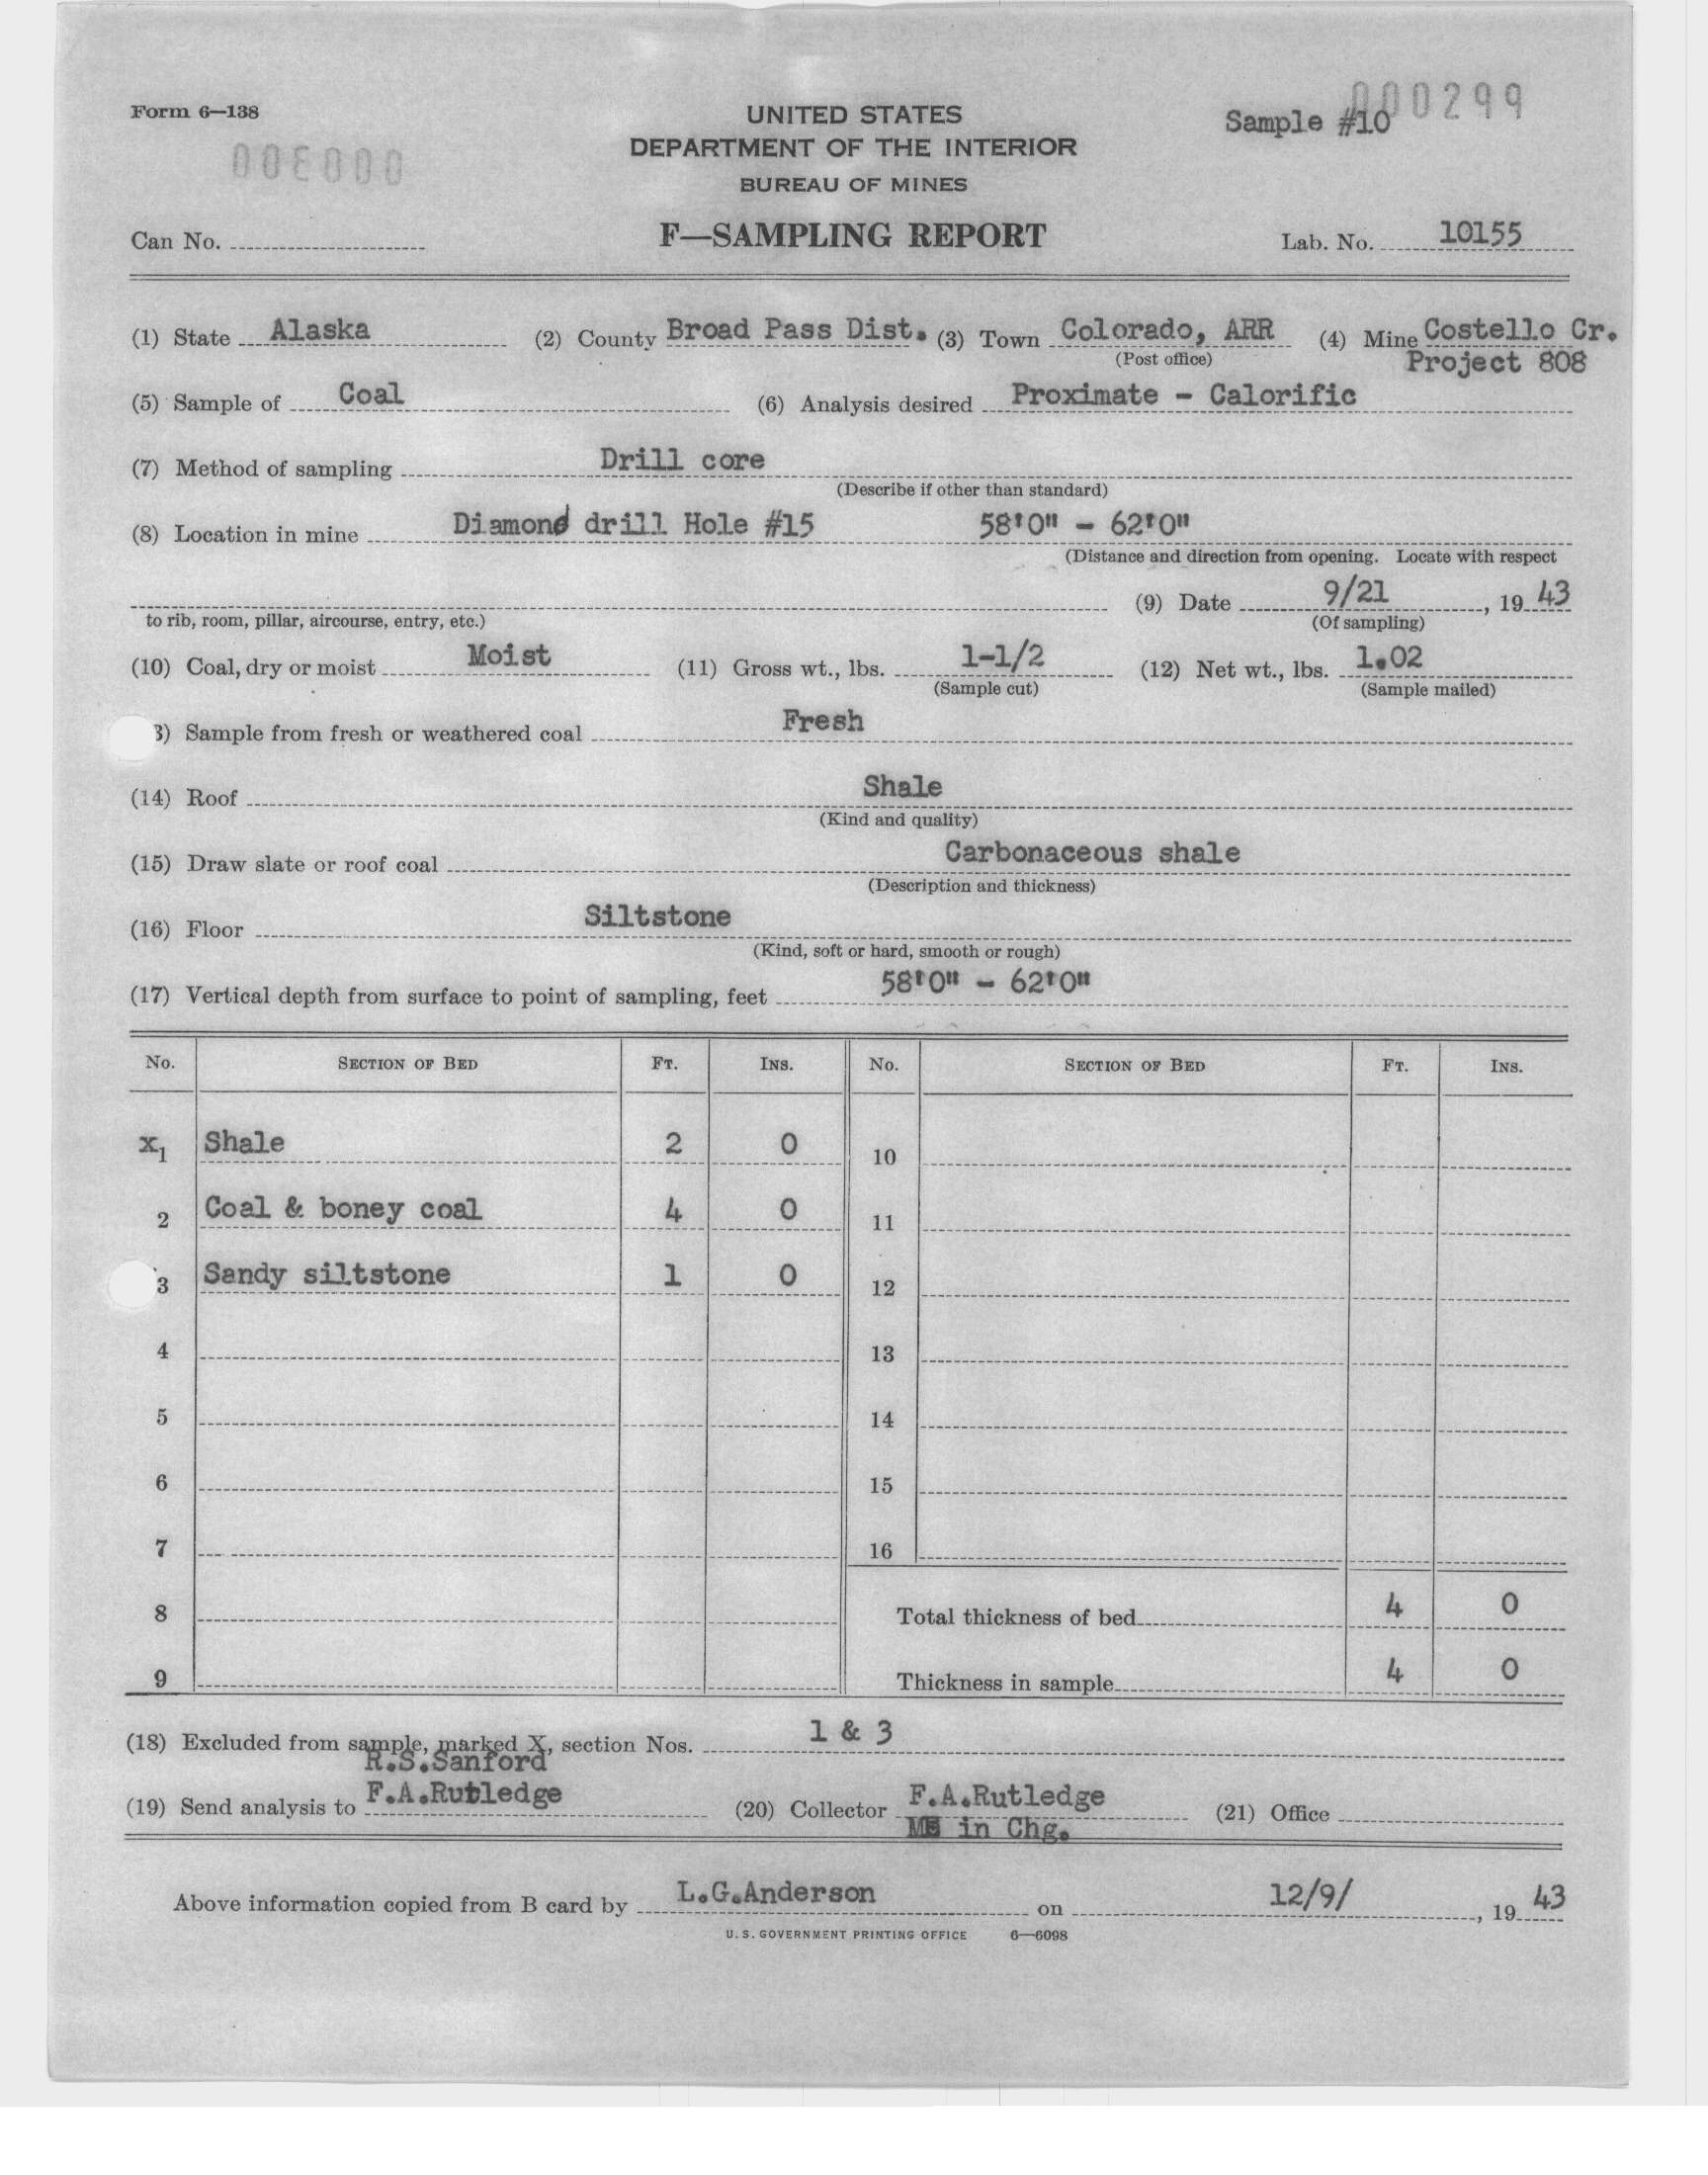 Form 6—138
UNITED STATES
Sample #10
000299
DEPARTMENT OF THE INTERIOR
000300
BUREAU OF MINES
Can No.
F—SAMPLING REPORT
Lab. No. 10155
(1) State Alaska (2) County Broad Pass Dist. (3) Town Colorado, ARR (4) Mine Costello Cr.
(Post office) Project 808
(5) Sample of Coal (6) Analysis desired Proximate - Calorific
(7) Method of sampling Drill core
(Describe if other than standard)
(8) Location in mine Diamond drill Hole #15 58'0" - 62'0"
(Distance and direction from opening. Locate with respect
(9) Date 9/21, 19 43
to rib, room, pillar, aircourse, entry, etc.) (Of sampling)
(10) Coal, dry or moist Moist (11) Gross wt., lbs. 1-1/2 (12) Net wt., lbs. 1.02
(Sample cut) (Sample mailed)
3) Sample from fresh or weathered coal Fresh
(14) Roof Shale
(Kind and quality)
(15) Draw slate or roof coal Carbonaceous shale
(Description and thickness)
(16) Floor Siltstone
(Kind, soft or hard, smooth or rough)
(17) Vertical depth from surface to point of sampling, feet 58'0" - 62'0"
No. SECTION OF BED FT. INS. No. SECTION OF BED FT. INS.
X1 Shale 2 0 10
2 Coal & boney coal 4 0 11
3 Sandy siltstone 1 0 12
4 13
5 14
6 15
7 16
8 Total thickness of bed 4 0
9 Thickness in sample 4 0
(18) Excluded from sample, marked X, section Nos. 1 & 3
R.S.Sanford
(19) Send analysis to F.A.Rutledge (20) Collector F.A.Rutledge (21) Office
in Chg.
Above information copied from B card by L.G.Anderson on 12/9/, 19 43
U. S. GOVERNMENT PRINTING OFFICE 6—6098